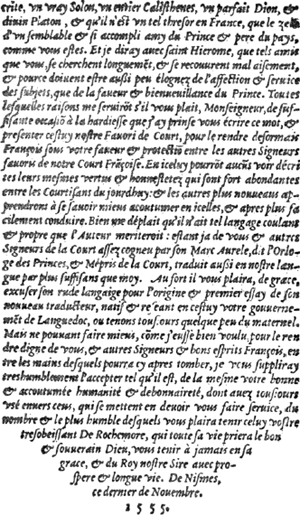 crite, vn vray Solon, vn entier Callisthenes, vn parfait Dion, &
diuin Platon, & qu'il n'ẽst vn tel thresor en France, que le zele
d'vn semblable & si accompli amy du Prince & pere du pays,
comme vous estes. Et ie diray auec saint Hierome, que tels amis
que vous, se cherchent longuemẽt, & se recouurent mal aisement,
& pource doiuent estre aussi peu élognez de l'affection & seruice
des subjets, que de la faueur & bienueuillance du Prince. Toutes
lesquelles raisons me seruirõt s'il vous plait, Monseigneur, de suf-
fisante occasiõ à la hardiesse que i'ay prinse vous écrire ce mot, &
presenter cestuy nostre Fauori de Court, pour le rendre desormais
François sous votre faueur & protectiõ entre les autres Signeurs
fauoris de notre Court Frãçoise. En iceluy pourrõt aucũs voir décri
tes leurs mesmes vertus & honnestetez qui sont fort abondantes
entre les Courtisans du jourdhuy: & les autres plus nouueaus ap-
prendront à se sauoir mieus acoutumer en icelles, & apres plus fa
cilement conduire. Bien me déplait qu'il n'ait tel langage coulant
& propre que l'Auteur meriteroit : estant ja de vous & autres
Signeurs de la Court assez cogneu par son Marc Aurele, d'i l'Orlo-
ge des Princes, & Mépris de la Court, traduit aussi en nostre lan-
gue par plus suffisans que moy. Au fort il vous plaira, de grace,
excuser son rude langaige pour l'origine & premier essay de son
nouueau traducteur, natif & re'eant en cestuy votre gouuerne-
mẽt de Languedoc, ou tenons tousiours quelque peu du maternel.
Mais ne pouuant faire mieus, cõme j'eusse bien voulu, pour le ren
dre digne de vous, & autres Signeurs & bons esprits François, en
tre les mains desquels pourra cy apres tomber, je vous suppliray
treshumblement l'accepter tel qu'il est, de la mesme votre bonne
& accoutumée humanité & debonnaireté, dont auez tousiours
vsé enuers ceus, qui se mettent en deuoir vous faire seruice, du
nombre & le plus humble desquels vous plaira tenir celuy vostre
tresobeissant De Rochemore, qui toute sa vie priera le bon
& souuerain Dieu, vous tenir à jamais en sa
grace, & du Roy nostre Sire auec pro-
spere & longue vie. De Nismes,
ce dernier de Nouembre.
1555.